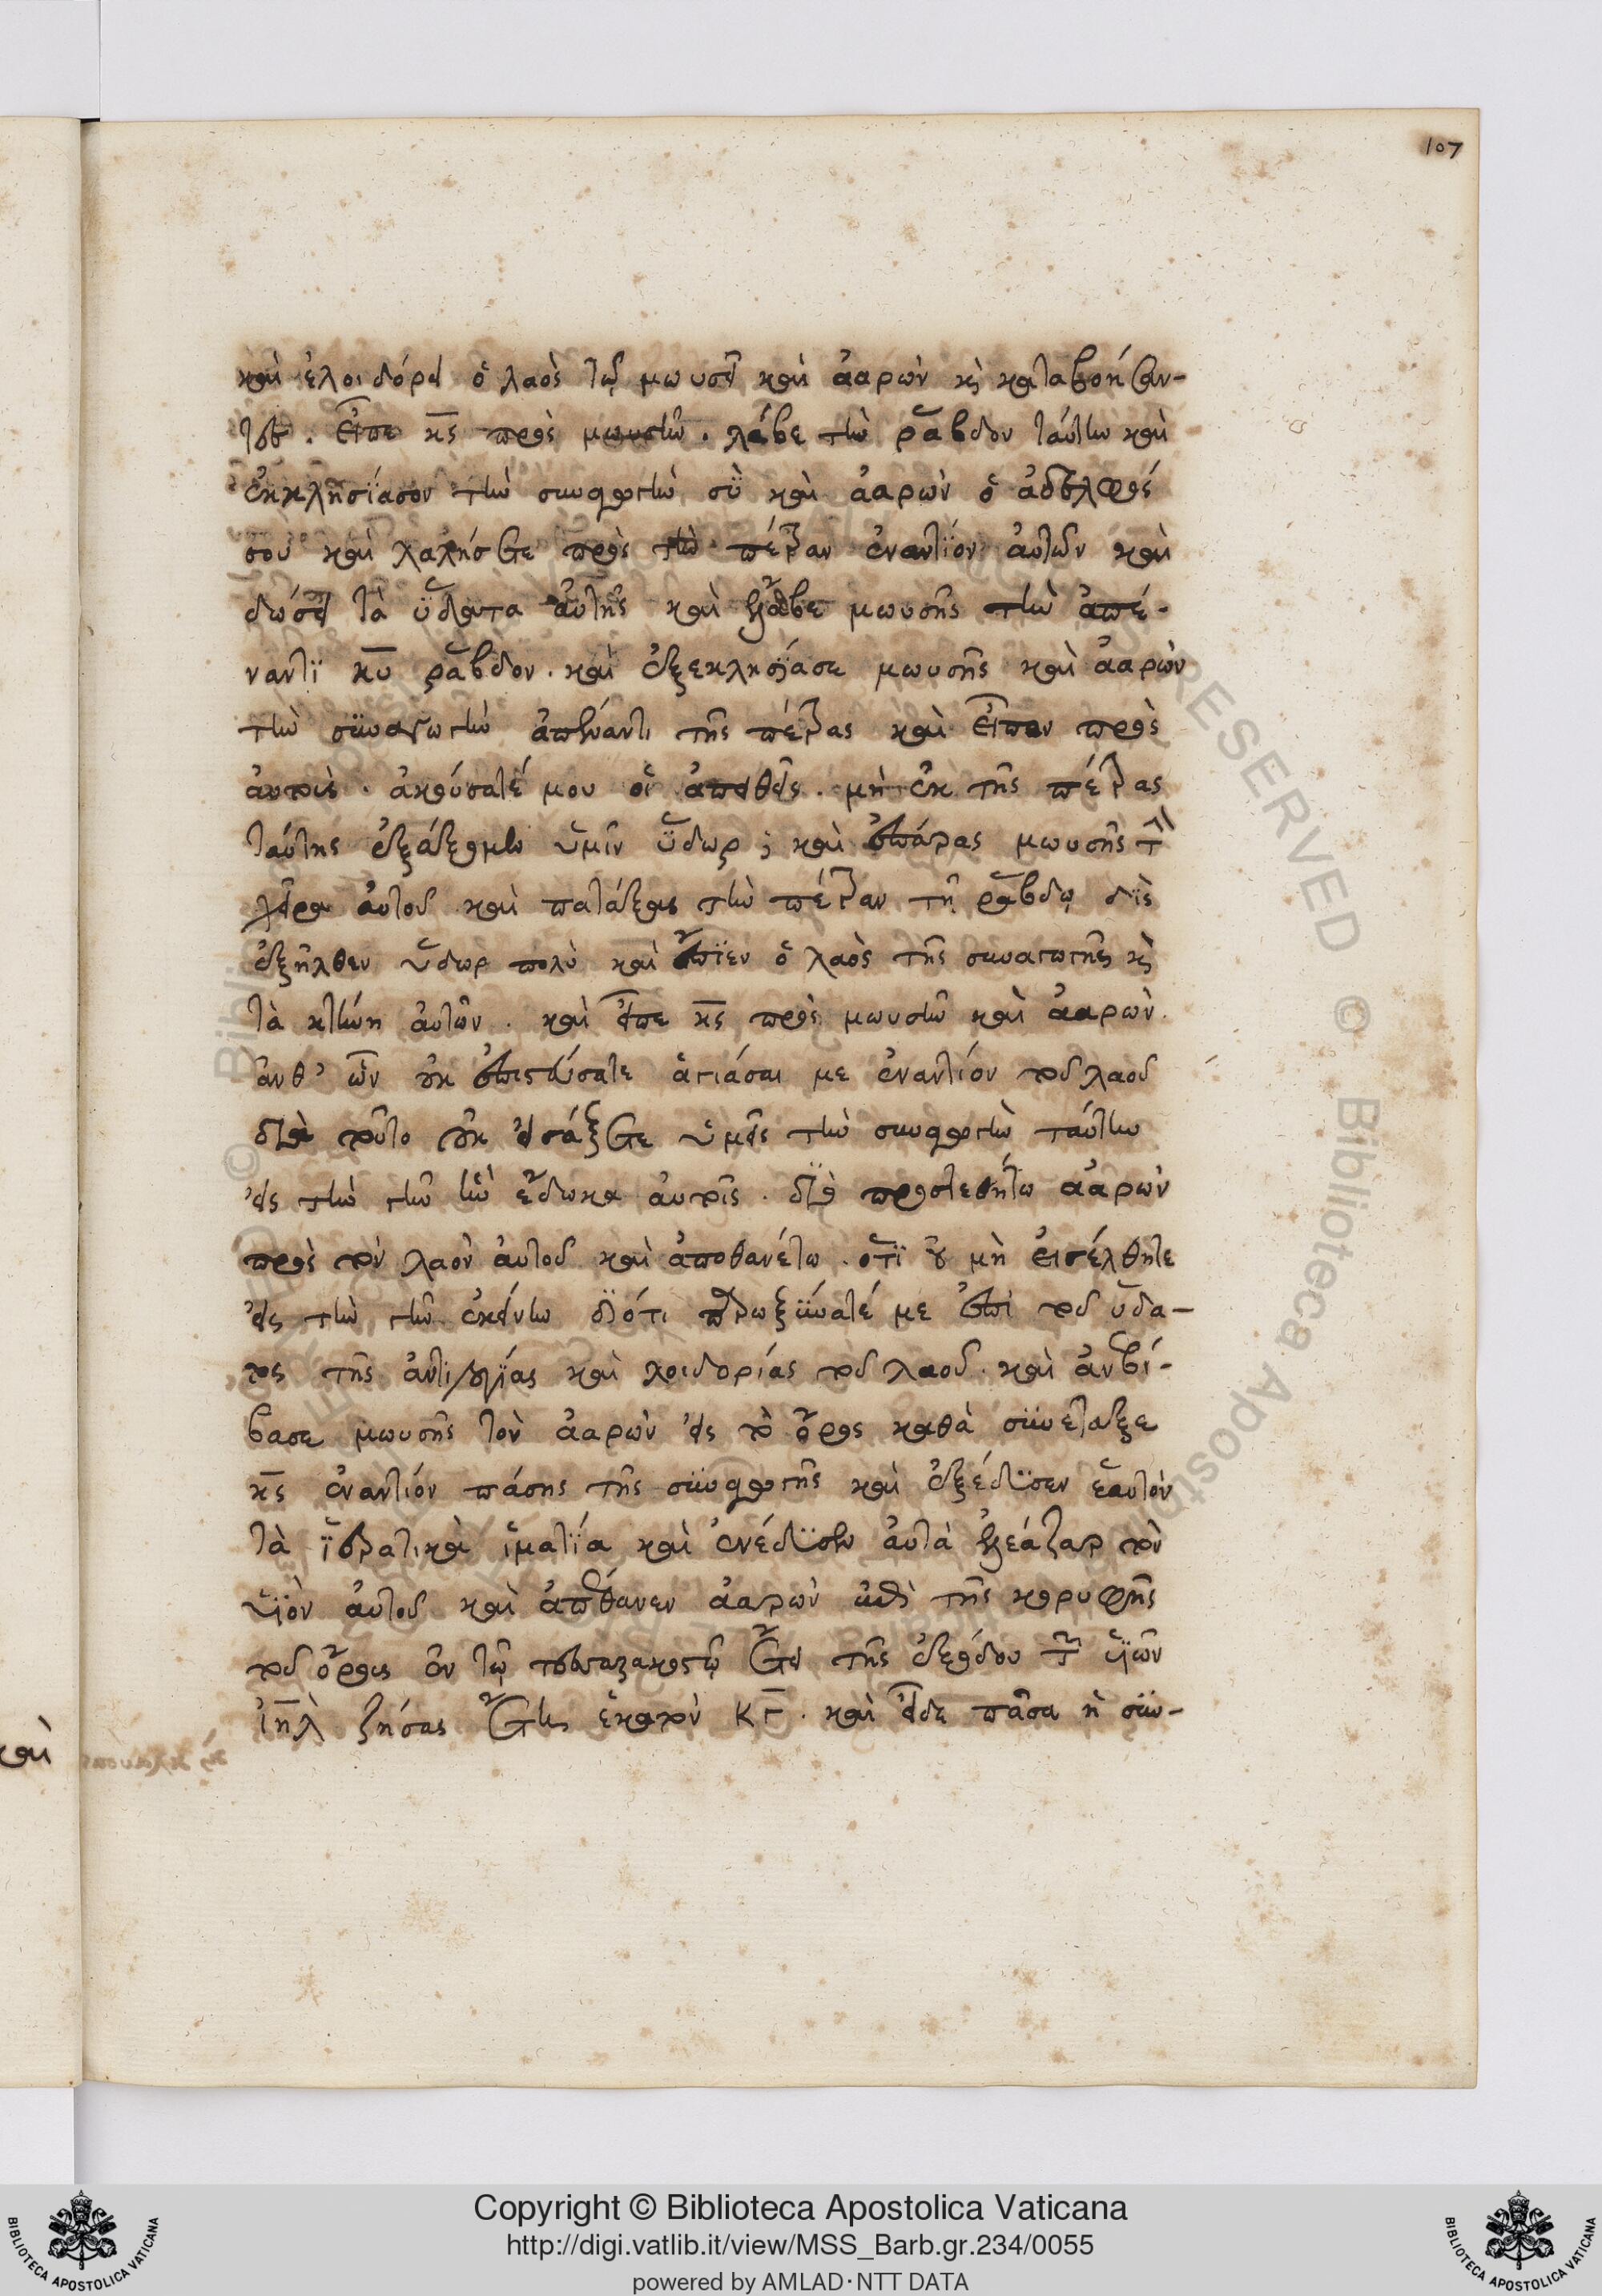 107
καὶ ἐλοιδόρει ὁ λαὸς τῷ μωυσεῖ καὶ ἀαρὼν κὶ καταβοήσαν-
τες. εἶπε κς πρὸς μωυσῆν. λάβε τὴν ῥάβδον ταύτην καὶ
ἐκκλησϊασον τὴν συναγωγὴν σὺ καὶ ἀαρὼν ὁ ἀδελφός
σου καὶ λαλήσετε πρὸς τὴν πέτραν ἐναντϊον αὐτῶν καὶ
δώσει τὰ ὕδατα αὐτῆς καὶ ἔλαβε μωυσῆς τὴν ἀπέ-
ναντϊ κυ ῥάβδον. καὶ ἐξεκλησϊάσε μωυσῆς καὶ ἀαρὼν
τὴν συναγωγὴν ἀπέναντι τῆς πέτρας καὶ εἶπον πρὸς
αὐτοὺς. ἀκούσατέ μου οἱ ἀπειθεῖς. μὴ ἐκ τῆς πέτρας
ταύτης ἐξάξομεν ὑμῖν ὕδωρ; καὶ ἐπάρας μωυσῆς τὴν
χεῖρα αὐτοῦ καὶ πατάξας τὴν πέτραν τῇ ῥάβδῳ δὶς
ἐξῆλθεν ὕδωρ πολὺ καὶ ἔπϊεν ὁ λαὸς τῆς συναγωγῆς κὶ
τὰ κτήνη αὐτῶν. καὶ εἶπε κς πρὸς μωυσῆν καὶ ἀαρὼν.
ἀνθ' ὧν οὐκ ἐπιστεύσατε ἁγιάσαι με ἐναντίον τοῦ λαοῦ
διὰ τοῦτο οὐκ εἰσάξετε ὑμεῖς τὴν συναγωγὴν ταύτην
εἰς τὴν γῆν ἣν ἔδωκα αὐτοῖς. διὸ προστεθήτω ἀαρὼν
πρὸς τὸν λαὸν αὐτοῦ καὶ ἀποθανέτω. ὅτϊ οὐ μὴ εἰσέλθητε
εἰς τὴν γῆν ἐκείνην διότι παρωξύνατέ με ἐπὶ τοῦ ὕδα-
τος τῆς ἀντιλογϊας καὶ λοιδορίας τοῦ λαοῦ. καὶ ἀνεβί-
βασε μωυσῆς τὸν ἀαρὼν εἰς τὸ ὄρος καθὰ συνέταξε
κς ἐναντίον πάσης τῆς συναγωγῆς καὶ ἐξέδυσεν ἑαυτὸν
τὰ ἱερατικὰ ἱματϊα καὶ ἐνέδυσεν αὐτὰ ἐλεάζαρ τὸν
υἱὸν αὐτοῦ καὶ ἀπέθανεν ἀαρὼν ἐπὶ τῆς κορυφῆς
τοῦ ὄρους ἐν τῷ τεσσαρακοστῷ ἔτει τῆς ἐξόδου τῶν υἱῶν
ἰηλ ζήσας ἔτη ἑκατὸν κγ. καὶ εἶδε πᾶσα ἡ συν-
καὶ